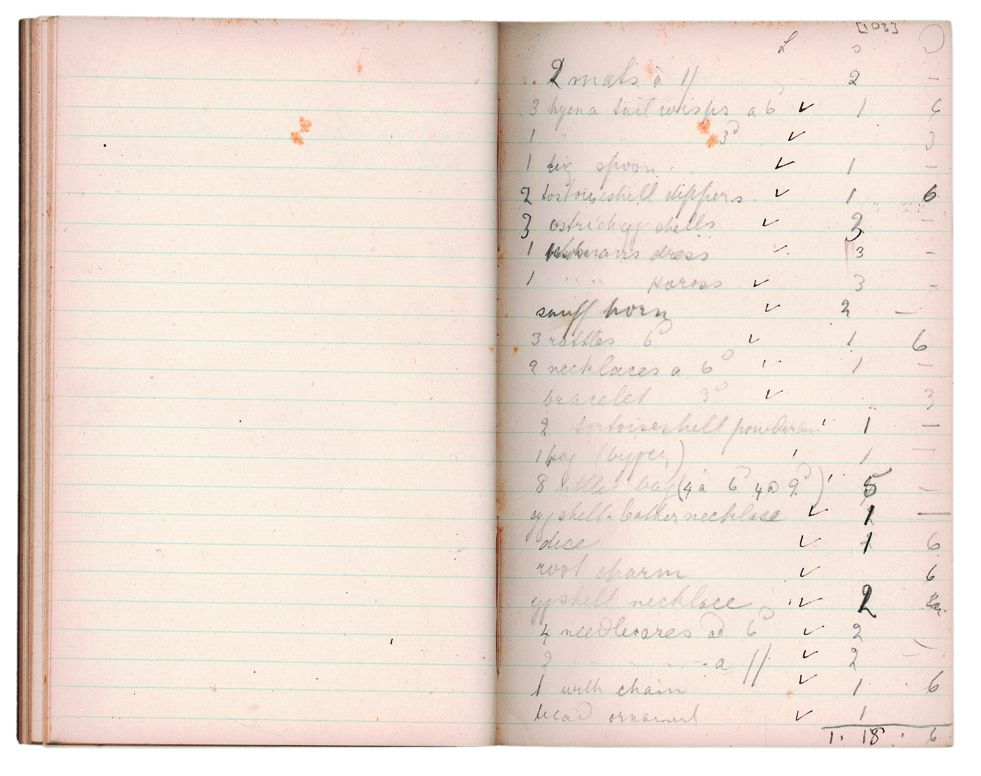 [103]
£ s
2 mats à 1/ 2 –
3 hyena tail whisps a 6ᵈ ✓ 1 6
1 " 3ᵈ ✓ 3
1 big spoon ✓ 1 –
2 tortoiseshell dippers ✓ 1 6
3 ostrichegg shells ✓ 3 –
1 dress ✓ 3 –
1 " " Kaross ✓ 3 –
snuff horn ✓ 2 –
3 rattles 6ᵈ ✓ 1 6
2 necklaces a 6ᵈ 1 –
bracelet 3ᵈ ✓ 3
2 tortoiseshell 1 –
1 bag (bigger) 1 –
8 little bag (4 à 6ᵈ 4 a 9ᵈ) 5 –
eggshell-leather necklace ✓ 1 –
dice ✓ 1 6
root charm ✓ 6
eggshell necklace ✓ 2
4 needlecases ad 6ᵈ ✓ 2
2 - - - - a 1/ ✓ 2 –
1 with chain ✓ 1 6
head ornament ✓ 1
1. 18. 6